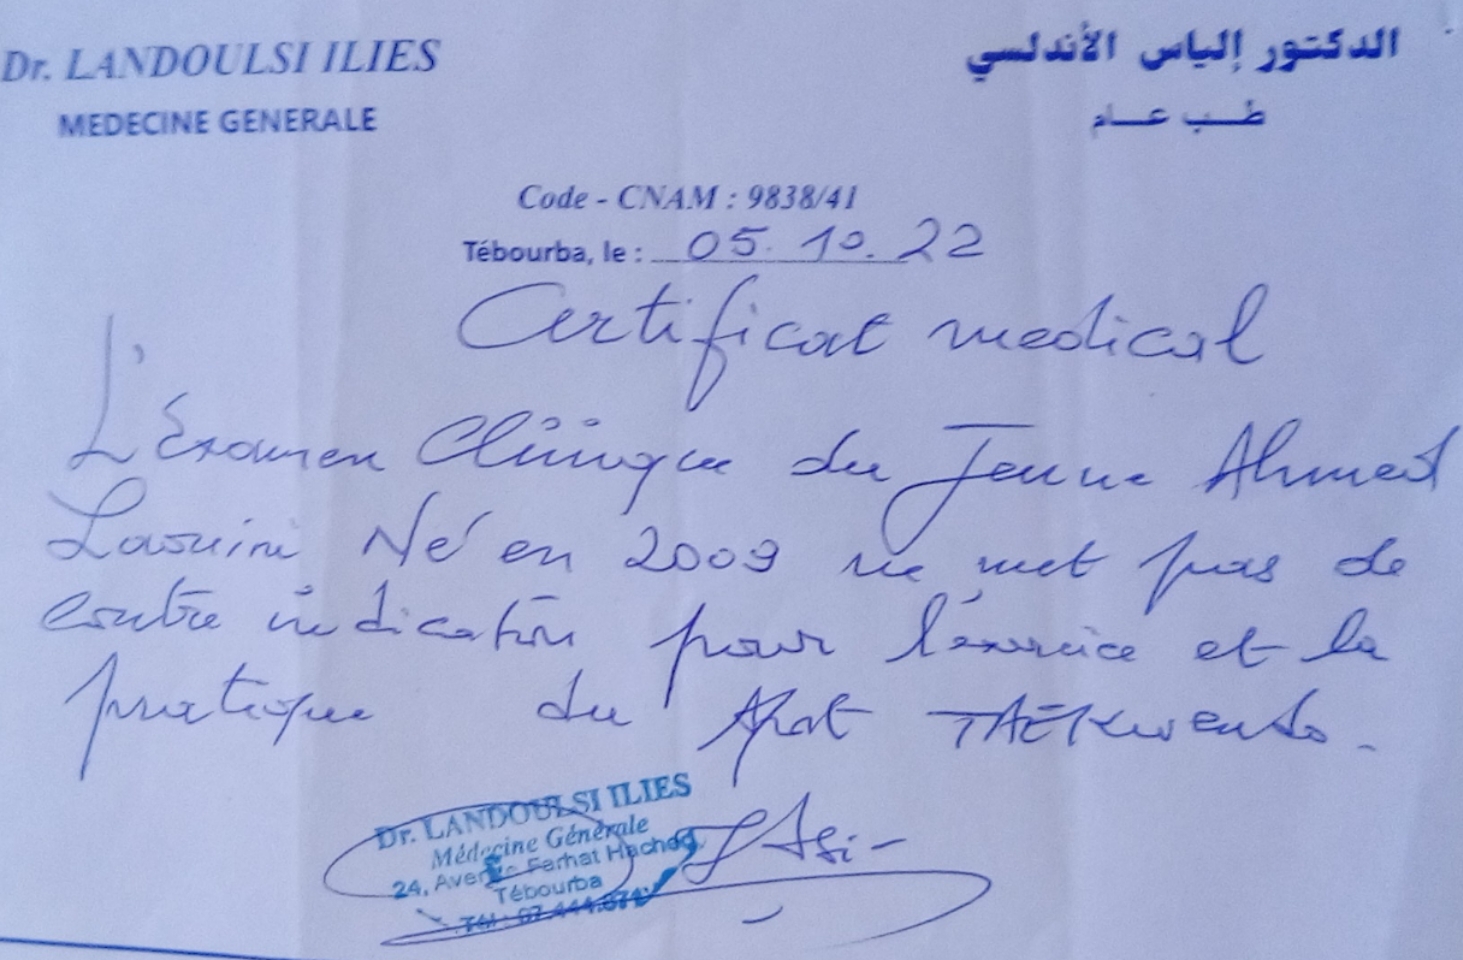 Dr. LANDOULSI ILIES
MEDECINE GENERALE
الدكتور إلياس الأندلسي
طب عام
Code - CNAM : 9838/41
Tébourba, le : 05. 10. 22
Certificat medical
L'Examen Clinique du Jeune Ahmed
Laouini Né en 2009 ne met pas de
contre indication pour l'éxercice et la
pratique du Sport TAEKwendo.
Dr. LANDOULSI ILIES
Médecine Générale
24, Avenue Farhat Hached
Tébourba